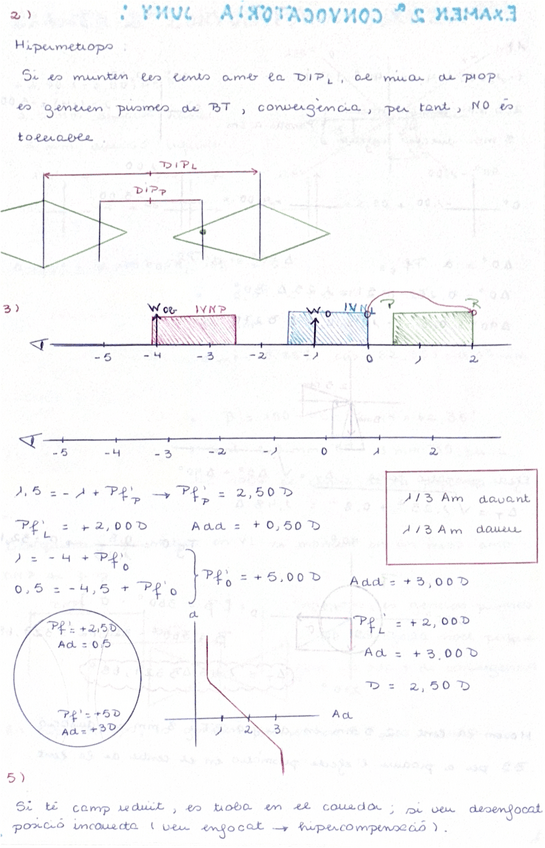 EXAMEN 2ª CONVOCATÒRIA JUNY:
2)
Hipermetrops:
Si es munten les lents amb la DIP_L, al mirar de prop
es generen prismes de BT, convergència, per tant, NO és
tolerable.
DIP_L
DIP_P
3)
W_OB IVNP W_0 IVNL P R
-5 -4 -3 -2 -1 0 1 2
-5 -4 -3 -2 -1 0 1 2
1,5 = -1 + Pf'_P → Pf'_P = 2,50 D
Pf'_L = +2,00 D Add = +0,50 D
1 = -4 + Pf'_0
0,5 = -4,5 + Pf'_0
Pf'_0 = +5,00 D
1/3 Am davant
1/3 Am darrere
Add = +3,00 D
Pf'_L = +2,00 D
Ad = +3,00 D
D = 2,50 D
Pf' = +2,50
Ad = 0,5
Pf' = +5D
Ad = +3D
d
1 2 3
Ad
5)
Si té camp reduït, es troba en el corredor; si veu desenfocat
posició incorrecta (veu enfocat → hipercompensació).